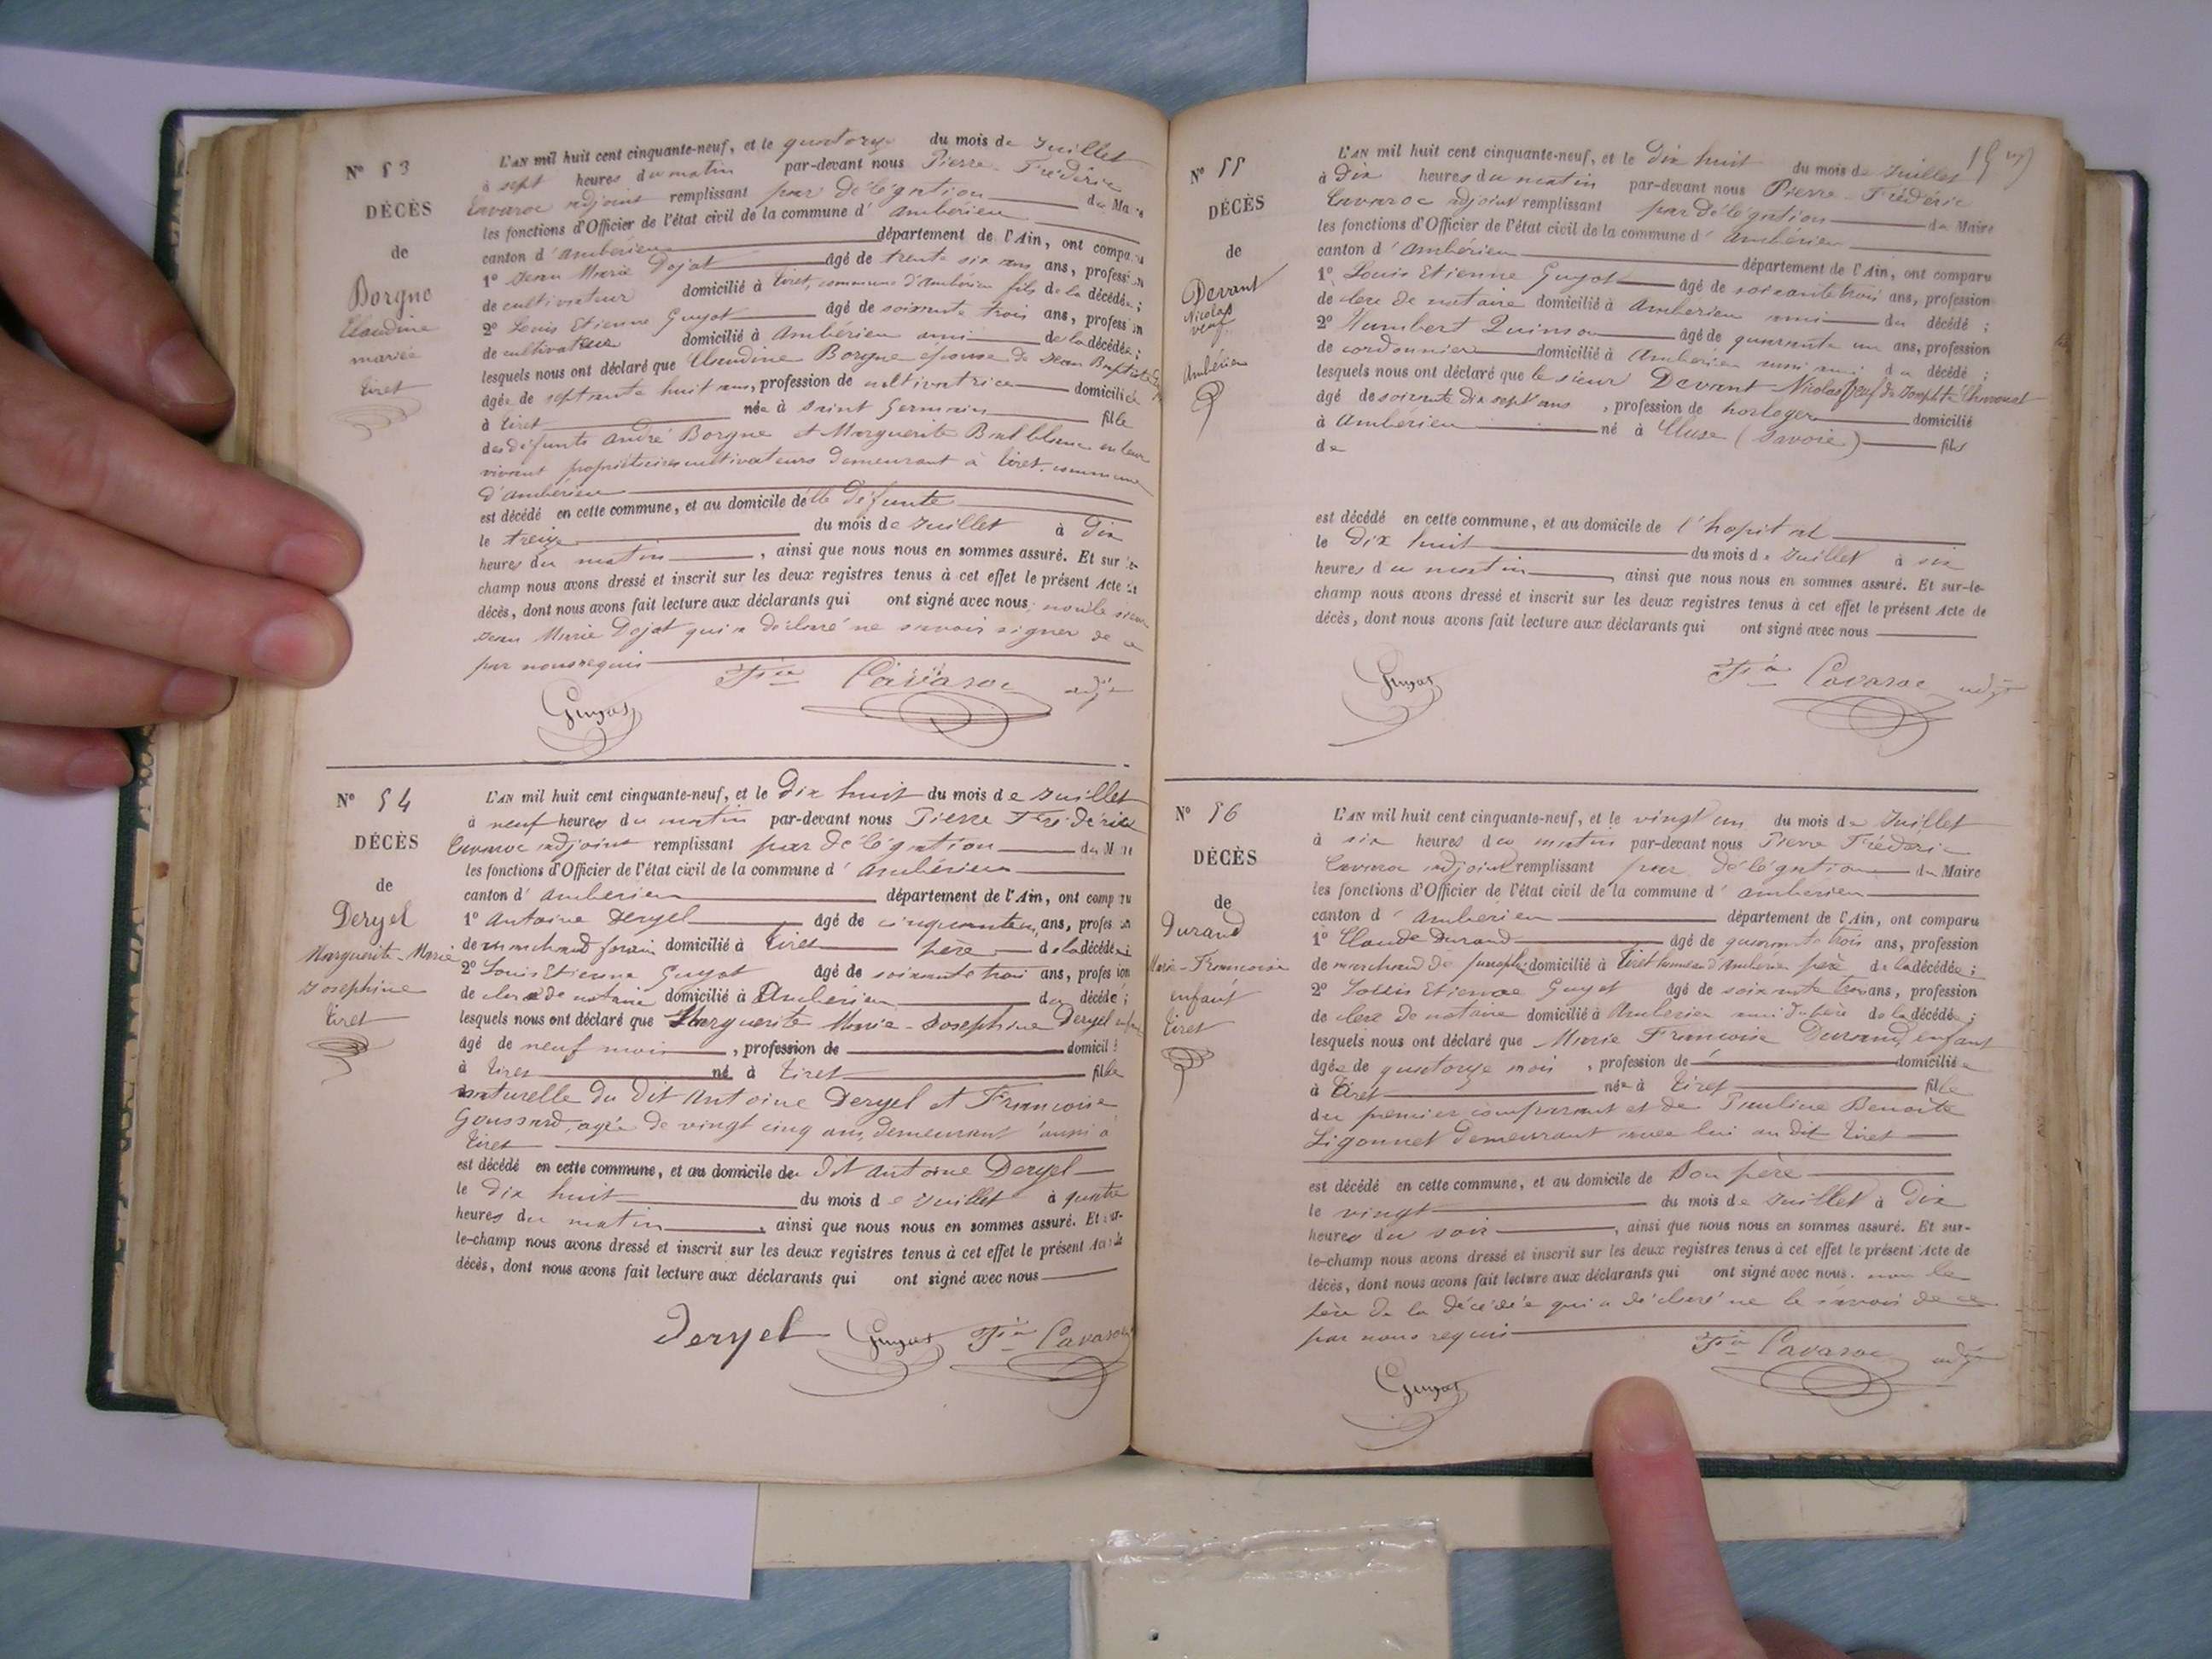 N° 53
DÉCÈS
de
Borgne
Claudine
mariée
tiret
L'AN mil huit cent cinquante-neuf, et le quatorze du mois de Juillet
à sept heures du matin par-devant nous Pierre Frédéric
Cavaroc adjoint remplissant par délégation du Maire
les fonctions d'Officier de l'état civil de la commune d' ambérieu
canton d'ambérieu département de l'Ain, ont comparu
1° Jean Marie Dojat âgé de trente six ans ans, profession
de cultivateur domicilié à tiret, commune d'ambérieu fils de la décédée ;
2° Louis Etienne Guyot âgé de soixante trois ans, profession
de cultivateur domicilié à Ambérieu ami de la décédée ;
lesquels nous ont déclaré que Claudine Borgne épouse de Jean Baptiste
âgée de septante huit ans, profession de cultivatrice domiciliée
à tiret née à Saint Germain fille
des défunts andré Borgne et Marguerite en leur
vivant propriétaires cultivateurs demeurant à tiret commune
d'ambérieu
est décédé en cette commune, et au domicile de la défunte
le treize du mois de Juillet à dix
heures du matin, ainsi que nous nous en sommes assuré. Et sur-le-
champ nous avons dressé et inscrit sur les deux registres tenus à cet effet le présent Acte de
décès, dont nous avons fait lecture aux déclarants qui ont signé avec nous non le sieur
Jean Marie Dojat qui a déclaré ne savoir signer de ce
par nous requis
Guyot Cavaroc adj
N° 54
DÉCÈS
de
Deryel
Marguerite-Marie
Josephine
tiret
L'AN mil huit cent cinquante-neuf, et le dix huit du mois de Juillet
à neuf heures du matin par-devant nous Pierre Frédéric
Cavaroc adjoint remplissant par délégation du Maire
les fonctions d'Officier de l'état civil de la commune d' ambérieu
canton d' ambérieu département de l'Ain, ont comparu
1° antoine Deryel âgé de cinquante un ans, profession
de marchand forain domicilié à tiret père de la décédée
2° Louis Etienne Guyot âgé de soixante trois ans, profession
de clerc de notaire domicilié à Ambérieu du décédé ;
lesquels nous ont déclaré que Marguerite Marie-Josephine Deryel enfant
âgé de neuf mois, profession de domicilié
à tiret né à tiret fille
naturelle du dit antoine Deryel et Francoise
Goussard, agée de vingt cinq ans, demeurant aussi à
tiret
est décédé en cette commune, et au domicile du dit antoine Deryel
le dix huit du mois de Juillet à quatre
heures du matin, ainsi que nous nous en sommes assuré. Et sur-
le-champ nous avons dressé et inscrit sur les deux registres tenus à cet effet le présent Acte de
décès, dont nous avons fait lecture aux déclarants qui ont signé avec nous
Deryel Guyot Cavaroc
N° 55
DÉCÈS
de
Devant
Nicolas
veuf
Ambérieu
L'AN mil huit cent cinquante-neuf, et le dix huit du mois de Juillet
à dix heures du matin par-devant nous Pierre-Frédéric
Cavaroc adjoint remplissant par délégation du Maire
les fonctions d'Officier de l'état civil de la commune d' ambérieu
canton d' ambérieu département de l'Ain, ont comparu
1° Louis Etienne Guyot âgé de soixante trois ans, profession
de clerc de notaire domicilié à ambérieu ami du décédé ;
2° Humbert Quinson âgé de quarante un ans, profession
de cordonnier domicilié à Ambérieu ami du décédé ;
lesquels nous ont déclaré que le sieur Devant Nicolas veuf de
âgé de soixante dix sept ans, profession de horloger domicilié
à ambérieu né à Cluse (Savoie) fils
de
est décédé en cette commune, et au domicile de l'hopital
le dix huit du mois de Juillet à six
heures du matin, ainsi que nous nous en sommes assuré. Et sur-le-
champ nous avons dressé et inscrit sur les deux registres tenus à cet effet le présent Acte de
décès, dont nous avons fait lecture aux déclarants qui ont signé avec nous
Guyot Cavaroc adj
N° 56
DÉCÈS
de
Durand
Marie-Francoise
enfant
tiret
L'AN mil huit cent cinquante-neuf, et le vingt un du mois de Juillet
à six heures du matin par-devant nous Pierre Frédéric
Cavaroc adjoint remplissant par délégation du Maire
les fonctions d'Officier de l'état civil de la commune d' ambérieu
canton d' ambérieu département de l'Ain, ont comparu
1° Claude Durand âgé de quarante trois ans, profession
de marchand de domicilié à tiret hameau d'ambérieu père de la décédée ;
2° Louis Etienne Guyot âgé de soixante trois ans, profession
de clerc de notaire domicilié à Ambérieu ami du père de la décédée ;
lesquels nous ont déclaré que Marie Francoise Durand, enfant
âgée de quatorze mois, profession de domiciliée
à tiret née à tiret fille
du premier comparant et de Pauline Benoite
Ligonnet demeurant avec lui au dit tiret
est décédé en cette commune, et au domicile de son père
le vingt du mois de Juillet à dix
heures du soir, ainsi que nous nous en sommes assuré. Et sur-
le-champ nous avons dressé et inscrit sur les deux registres tenus à cet effet le présent Acte de
décès, dont nous avons fait lecture aux déclarants qui ont signé avec nous. non le
père de la décédée qui a déclaré ne le savoir de ce
par nous requis
Guyot Cavaroc adj